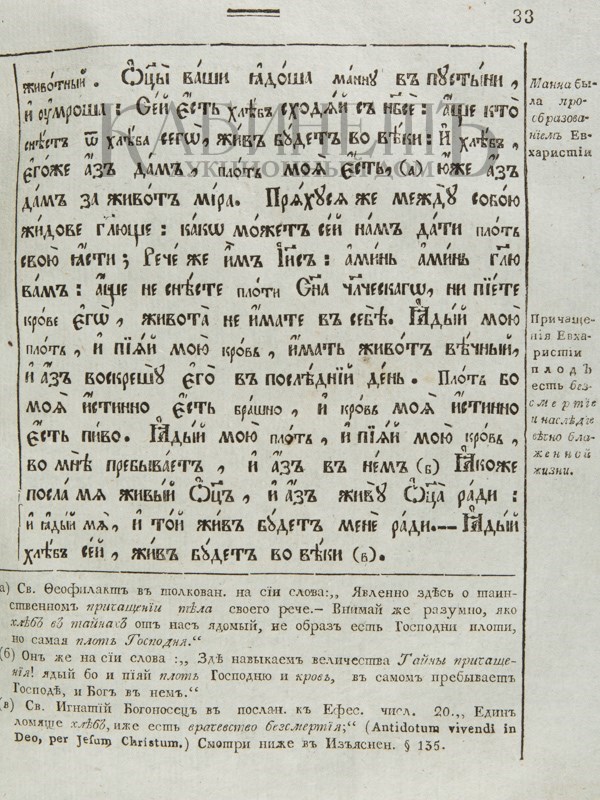 33
животный. Ѻц҃ы ва́ши ꙗ҆до́ша ма́нну въ пꙋсты́ни,
и҆ оу҆мро́ша: Се́й є҆́сть хлѣбъ сходѧ́й съ нб҃се: а҆́ще кто̀
снѣ́стъ ѿ хлѣ́ба сегѡ̀, жи́въ бꙋ́детъ во вѣ́ки: И҆ хлѣбъ,
є҆го́же а҆́зъ да́мъ, плоть моѧ̀ є҆́сть, (а) ю҆́же а҆́зъ
да́мъ за живо́тъ мі́ра. Прѧ́хꙋсѧ же междꙋ̀ собо́ю
жи́дове гл҃юще: ка́кѡ мо́жетъ се́й на́мъ да́ти плоть
свою̀ ꙗ҆́сти; Рече́ же и҆̀мъ І҆и҃съ: а҆ми́нь а҆ми́нь гл҃ю
ва́мъ: а҆́ще не снѣ́сте плоти Сн҃а чл҃ческагѡ, ни пїе́те
кро́ве є҆гѡ̀, живота̀ не и҆́мате въ себѣ̀. Ꙗ҆ды́й мою̀
плоть, и҆ пїѧ́й мою̀ кровь, и҆́мать живо́тъ вѣ́чный,
и҆ а҆́зъ воскрешꙋ̀ є҆го̀ въ послѣ́днїй де́нь. Плоть бо
моѧ̀ и҆́стинно є҆́сть брашно, и҆ кровь моѧ̀ и҆́стинно
є҆́сть пи́во. Ꙗ҆ды́й мою̀ плоть, и҆ пїѧ́й мою̀ кровь,
во мнѣ̀ пребыва́етъ, и҆ а҆́зъ въ не́мъ (б) Ꙗ҆́коже
посла́ мѧ живы́й Ѻц҃ъ, и҆ а҆́зъ живꙋ̀ Ѻц҃а ра́ди:
и҆ ꙗ҆ды́й мѧ̀, и҆ то́й жи́въ бꙋ́детъ менѐ ра́ди.—— Ꙗ҆ды́й
хлѣ́бъ се́й, жи́въ бꙋ́детъ во вѣ́ки (в).
Манна бы-
ла про-
образова-
ніемъ Ев-
харистіи
Причаще-
нія Евха-
ристіи
плодъ
есть без-
смертіе
и наслѣдіе
вѣчно бла-
женной
жизни.
а) Св. Ѳеофилактъ въ толкован. на сіи слова:,, Явленно здѣсь о таин-
ственномъ причащеніи тѣла своего рече.— Внимай же разумно, яко
хлѣбъ въ тайнахъ отъ насъ ядомый, не образъ есть Господни плоти,
но самая плоть Господня.“
(б) Онъ же на сіи слова :,, Здѣ навыкаемъ величества Тайны причаще-
нія! ядый бо и піяй плоть Господню и кровь, въ самомъ пребываетъ
Господѣ, и Богъ въ немъ.“
(в) Св. Игнатій Богоносецъ въ послан. къ Ефес. числ. 20.,, Единъ
ломяще хлѣбъ, иже есть врачевство безсмертія;“ (Antidotum vivendi in
Deo, per Jesum Christum.) Смотри ниже въ Изъяснен. § 135.
КАБИНЕТЪ
АУКЦИОННЫЙ ДОМ